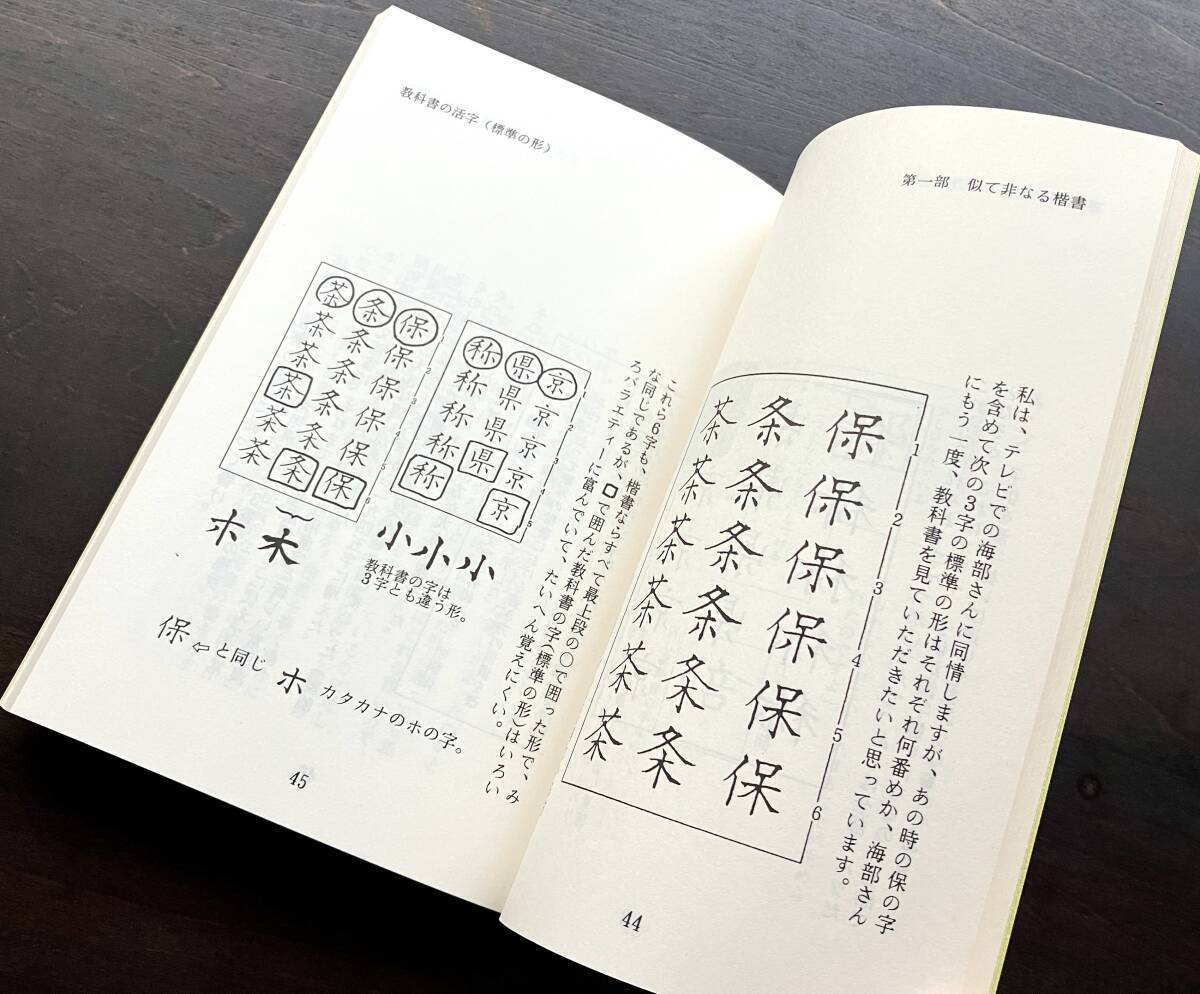 第一部　似て非なる楷書
私は、テレビでの海部さんに同情しますが、あの時の保の字
を含めて次の3字の標準の形はそれぞれ何番めか、海部さん
にもう一度、教科書を見ていただきたいと思っています。
保 保 保 保 保 保
条 条 条 条 条 条
茶 茶 茶 茶 茶 茶
1 2 3 4 5 6
44
教科書の活字（標準の形）
これら6字も、楷書ならすべて最上段の○で囲った形で、み
な同じであるが、□で囲んだ教科書の字（標準の形）はいろい
ろバラエティーに富んでいて、たいへん覚えにくい。
京 京 京 京 京
県 県 県 県
称 称 称 称 称
1 2 3 4 5
保 保 保 保 保 保
条 条 条 条 条 条
茶 茶 茶 茶 茶 茶
1 2 3 4 5 6
小 小 小
教科書の字は
3字とも違う形。
ホ 木
保 ⇦と同じ ホ カタカナのホの字。
45